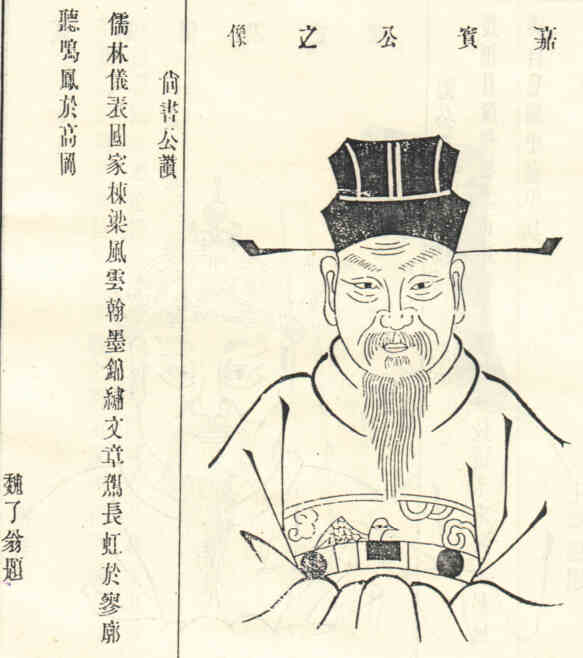 嘉賓公之像
尙書公讚
儒林儀表國家棟梁風雲翰墨錦繡文章駕長虹於寥廓
聽鳴鳳於高岡
魏了翁題